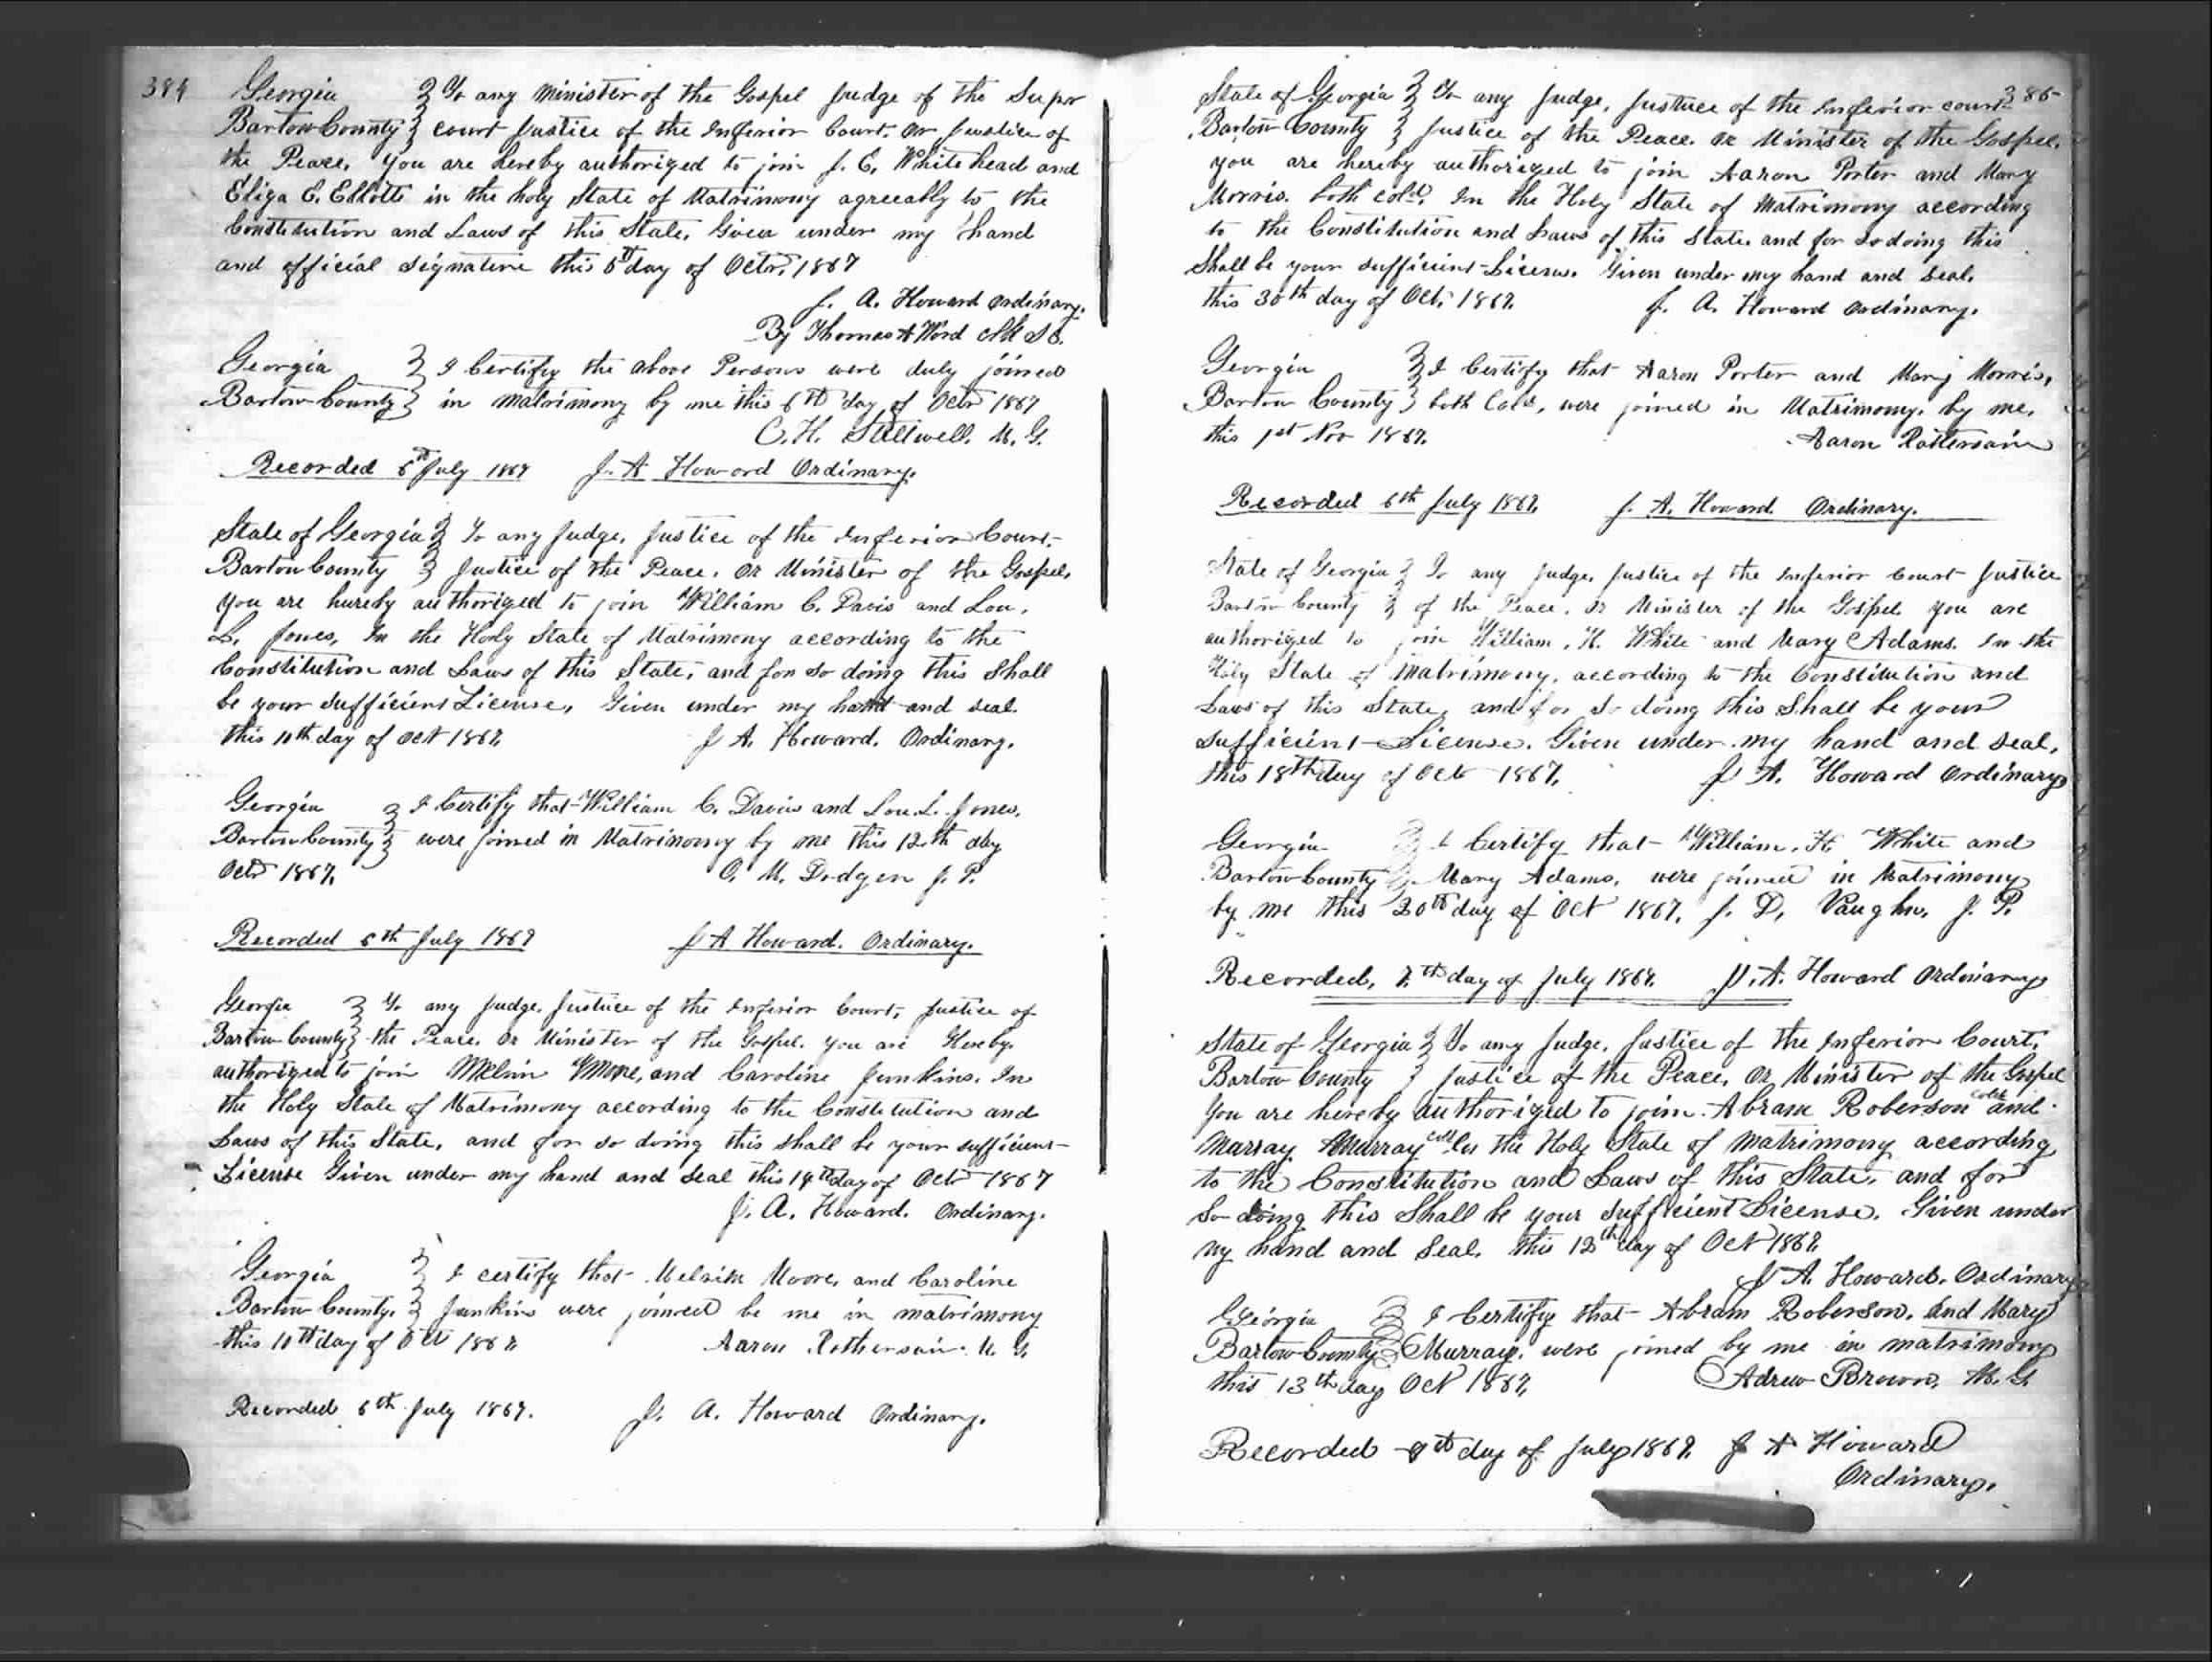 384
Georgia } To any Minister of the Gospel Judge of the Supr
Bartow County } court Justice of the Inferior Court, or Justice of
the Peace, You are hereby authorized to join J. C. Whitehead and
Eliza E. Elliotte in the holy State of Matrimony agreeably to the
Constitution and Laws of this State, Given under my hand
and official signature this 5th day of Octr, 1867
J. A. Howard Ordinary.
By Thomas A Word Clk S C.
Georgia } I Certify the above Persons were duly joined
Bartow County } in matrimony by me this 6th day of Octr 1867
C. H. Stillwell, M. G.
Recorded 6th July 1869 J. A Howard Ordinary.
State of Georgia } To any Judge, Justice of the Inferior Court,
Bartow County } Justice of the Peace, or Minister of the Gospel,
You are hereby authorized to join William C. Davis and Lou,
L. Jones, In the Holy State of Matrimony according to the
Constitution and Laws of this State, and for so doing this Shall
be your sufficient License, Given under my hand and seal
this 10th day of Oct 1867. J A. Howard, Ordinary.
Georgia } I Certify that William C. Davis and Lou. L. Jones,
Bartow County } were joined in Matrimony by me this 12th day
Octr 1867, O. M. Dodgen J. P.
Recorded 6th July 1869 J A Howard. Ordinary.
Georgia } To any Judge, Justice of the Inferior Court, Justice of
Bartow County } the Peace, or Minister of the Gospel. you are Hereby
authorized to join Melvin Moore, and Caroline Junkins, In
the Holy State of Matrimony according to the Constitution and
Laws of this State, and for so doing this shall be your sufficient
License Given under my hand and seal this day of Octr 1867
J. A. Howard. Ordinary.
Georgia } I certify that Moore, and Caroline
Bartow County. } Junkins were joined be me in matrimony
this day of Oct 1867 Aaron M. G.
Recorded 6th July 1869. J. A. Howard Ordinary.
385
State of Georgia } To any Judge, Justice of the Inferior court
Bartow County } Justice of the Peace. or Minister of the Gospel,
you are hereby authorized to join Aaron Porter and Mary
Morris. both cold. In the Holy State of Matrimony according
to the Constitution and Laws of this State and for so doing this
Shall be your sufficient License. Given under my hand and seal.
this 30th day of Oct, 1867. J. A. Howard Ordinary.
Georgia } I Certify that Aaron Porter and Mary Morris,
Bartow County } both Cold, were joined in Matrimony, by me,
this 1st Nov 1867. Aaron
Recorded 6th July 1869. J. A. Howard Ordinary.
State of Georgia } To any Judge, Justice of the Inferior Court Justice
Bartow County } of the Peace, or Minister of the Gospel you are
authorized to join William, H. White and Mary Adams. In the
Holy State of Matrimony, according to the Constitution and
Laws of this State, and for so doing this Shall be your
sufficient License. Given under my hand and seal,
this 18th day of Oct 1867, J A. Howard Ordinary
Georgia } I Certify that William, H. White and
Bartow County } Mary Adams, were joined in Matrimony
by me this 20th day of Oct 1867, J. D, Vaughn, J. P.
Recorded, 7th day of July 1869. J. A. Howard Ordinary
State of Georgia } To any Judge, Justice of the Inferior Court,
Bartow County } Justice of the Peace, or Minister of the Gospel
You are hereby authorized to join Abram Roberson cold and
Murray cold In the Holy State of matrimony according
to the Constitution and Laws of this State, and for
So doing this Shall be your sufficient License. Given under
my hand and Seal. this 12th day of Oct 1867.
J A. Howard. Ordinary
Georgia } I Certify that Abram Roberson, and Mary
Bartow County } Murray, were joined by me in matrimony
this 13th day Oct 1867, Adrew Brown, M. G.
Recorded day of July 1869. J A Howard
Ordinary.